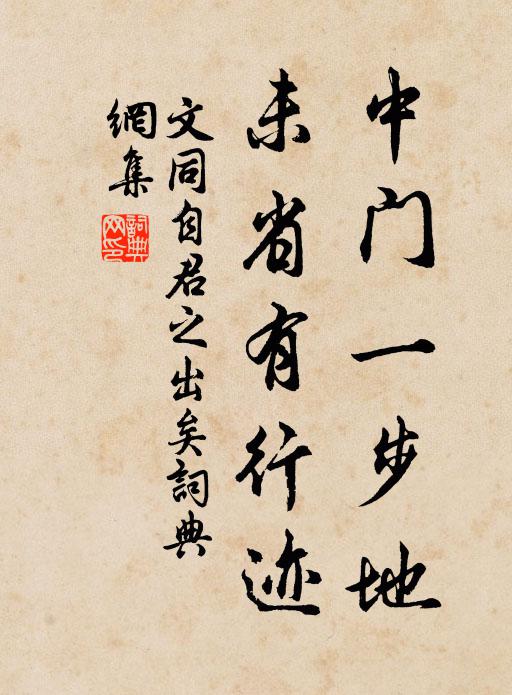 中门一步地
未省有行迹
文同自君之出矣詞典
網集
詞典
网印